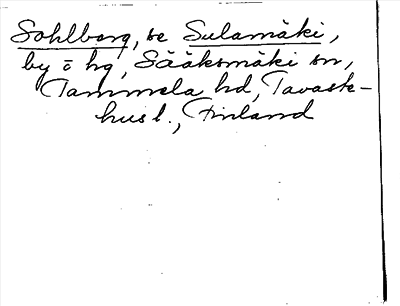 Sohlborg, se Sulamäki,
by o hg, Sääksmäki sn,
Tammela hd, Tavaste-
hus l., Finland